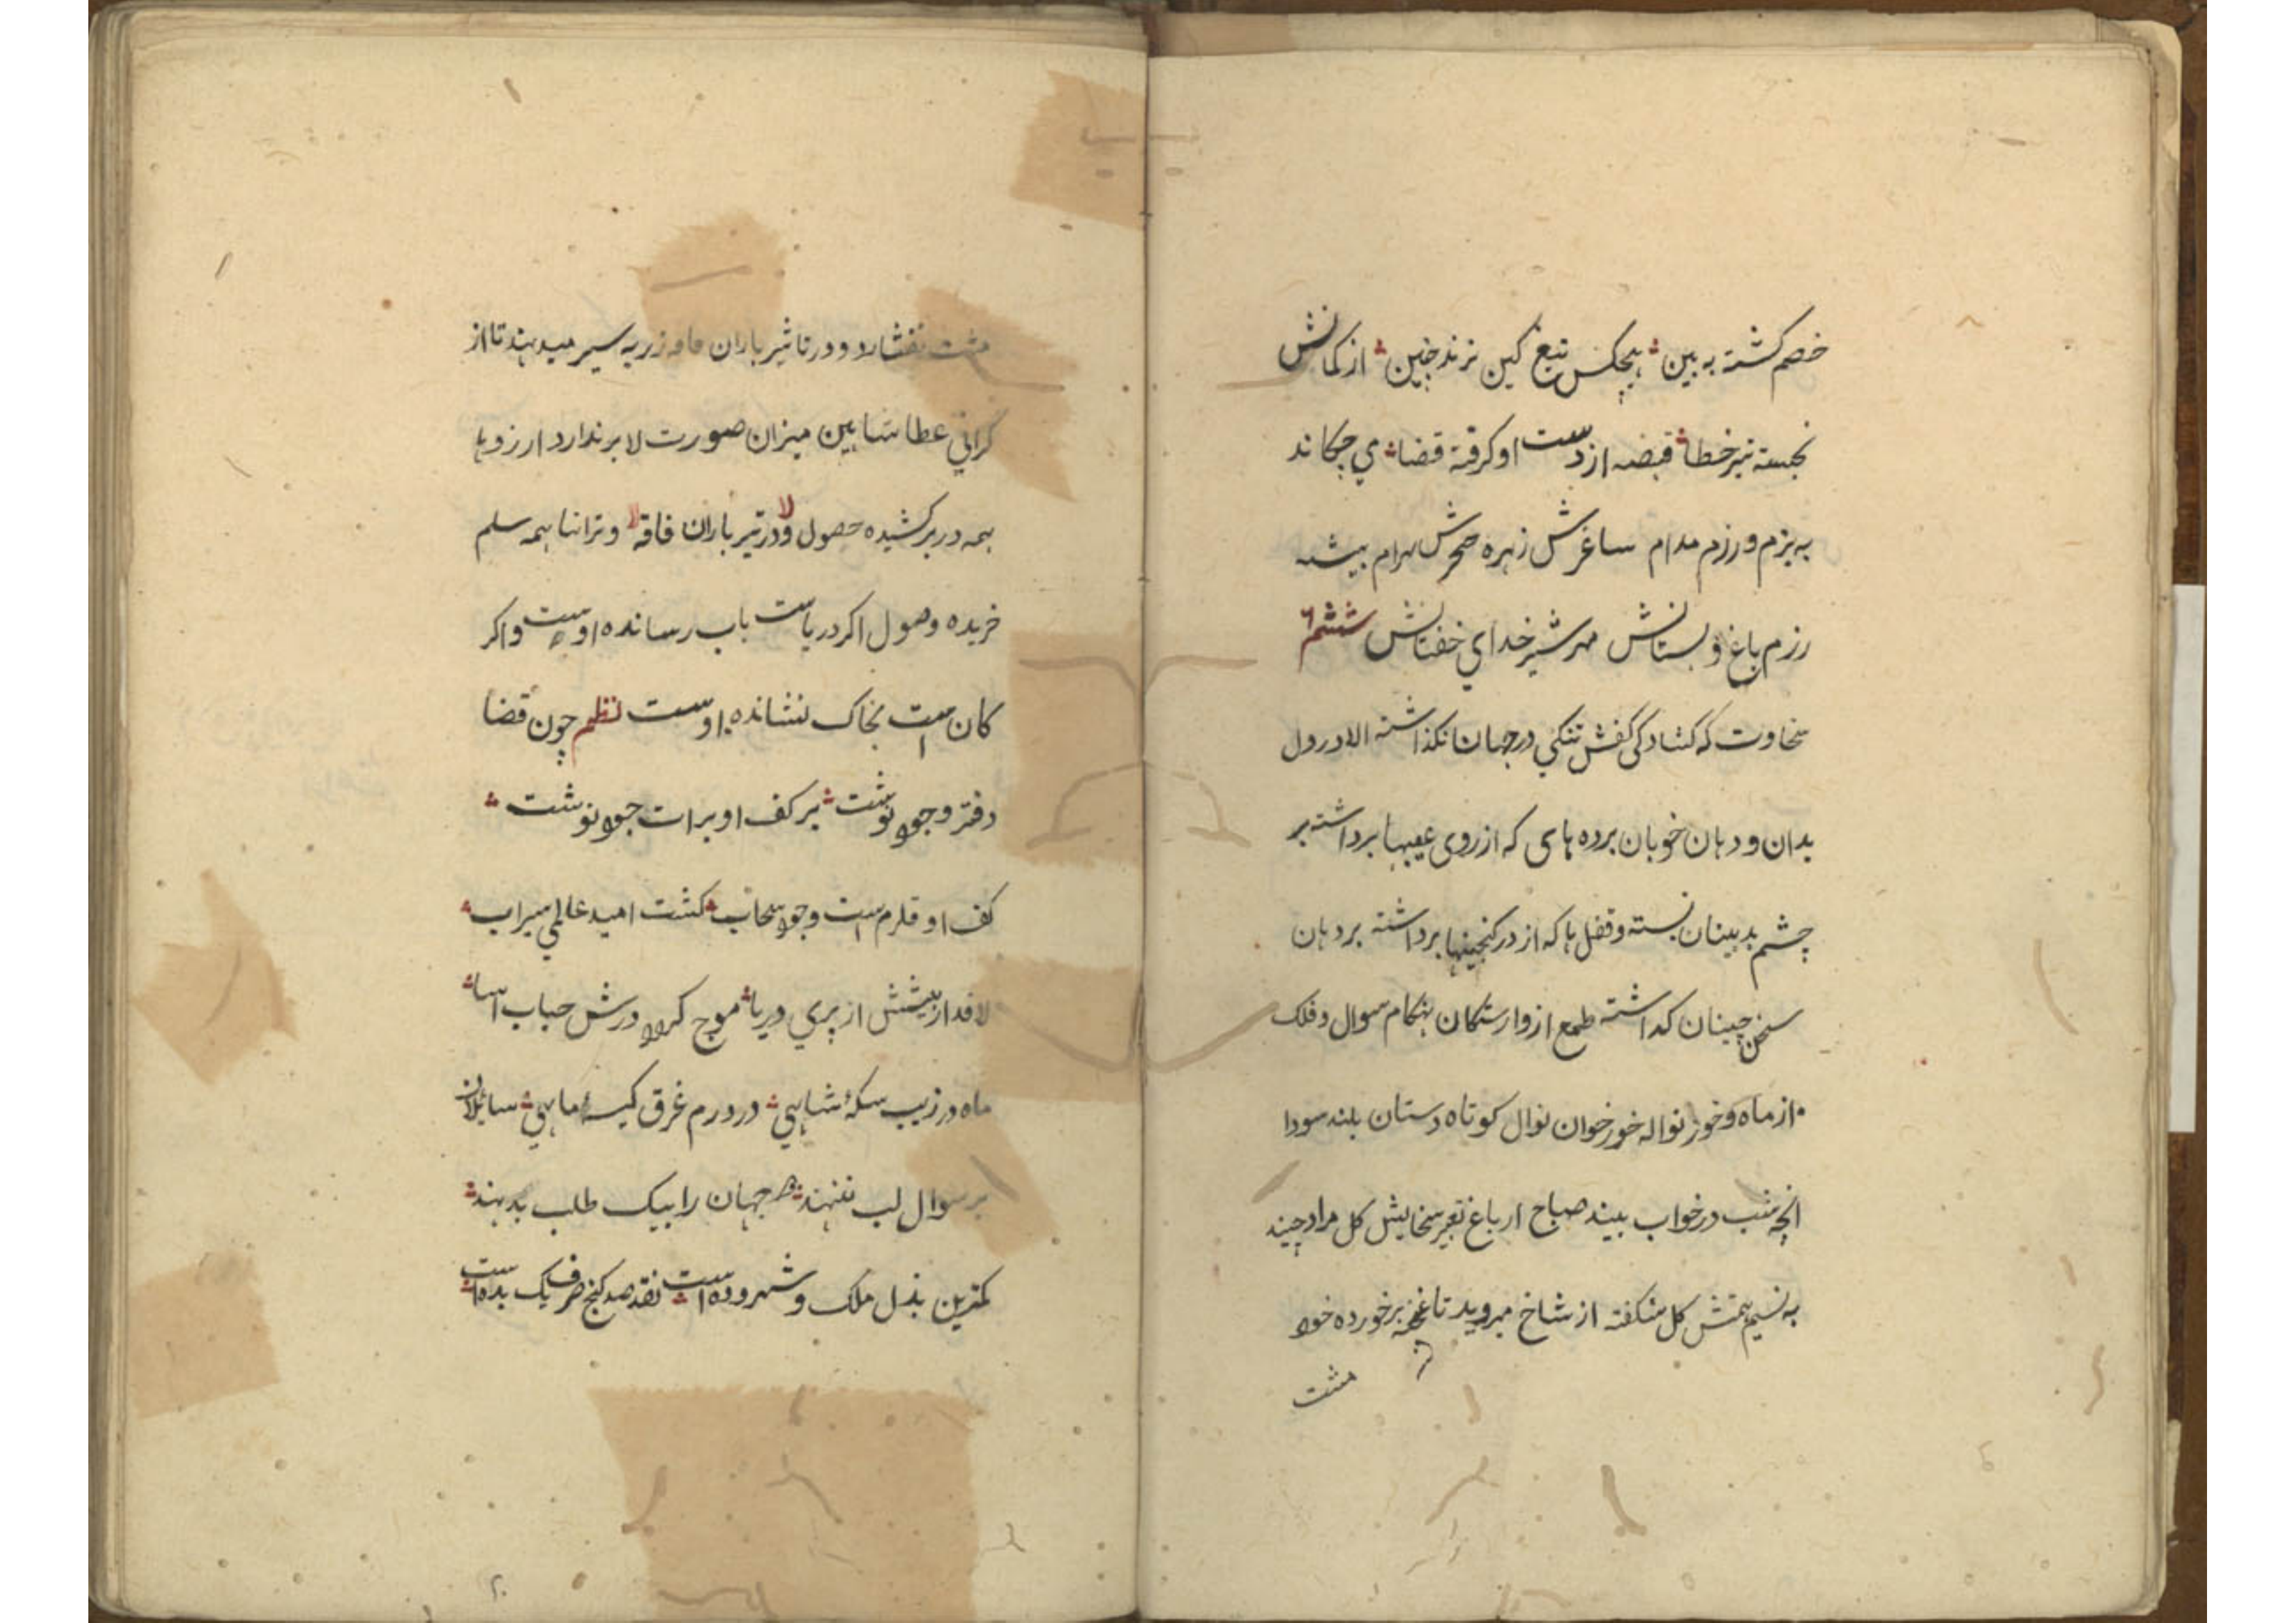 خصم کشته به بین ؞ هیچکس تیغ کین نزند چنین ؞ از کمانش
نجسته تیر خطا ؞ قبضه از دست او کرفته قضا ؞ ي چکاند
به بزم و رزم مدام ساغرش زهره خنجرش بهرام بیشه
رزم باغ و بستانش مهر شیر خداي خفتانش ششم ۶
سخاوت که کشادکی کفش تنکي در جهان نکذاشته الا در دل
بدان و دهان خوبان پرده های که از روی عیبها برداشته بر
چشم بدبینان بسته و قفل ها که از در کنجینها برداشته بر دهان
سخن چینان کذاشته طمع از وارستکان هنکام سوال و فلک
از ماه و خور نواله خور خوان نوال کوتاه دستان بلند سودا
انچه شب در خواب بیند صباح از باغ تعبیر سخایش کل مراد چیند
به نسیم همتش کل شکفته از شاخ میروید تا غنچه بر خورده خود
مشت
مشت نفشارد و در تاثیر باران فاقه زر به سپر میدهند تا از
کراني عطا شاهین میزان صورت لا بر ندارد ارزوها
همه در بر کشیده حصول و در تیر باران فاقه و تراننا همه سلم
خریده وصول اکر دریاست باب رسانده اوست و اکر
کان است بخاک نشانده اوست نظم چون قضا
دفتر وجود نوشت ؞ بر کف او برات جود نوشت ؞
کف او قلزم است وجود سحاب ؞ کشت امید عالمي سیراب ؞
لافد از بخششش از پري دریا ؞ موج کردد درش حباب اسا ؞
ماه در زیب سکهٔ شاهي ؞ در درم غرق کیسهٔ ماهي ؞ سایلان
بر سوال لب ننهند ؞ هر جهان را بیک طلب بدهند ؞
کمترین بذل ملک و شهر و ده است ؞ نقد صد کنج صرف یک بده است ؞